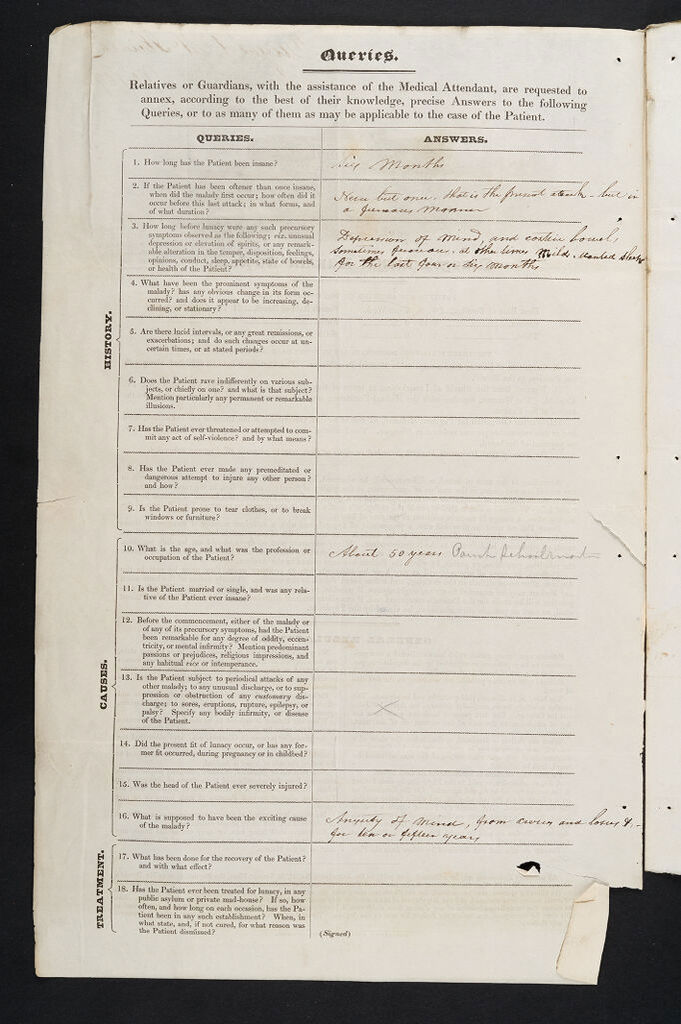 Queries.
Relatives or Guardians, with the assistance of the Medical Attendant, are requested to
annex, according to the best of their knowledge, precise Answers to the following
Queries, or to as many of them as may be applicable to the case of the Patient.
QUERIES.
ANSWERS.
HISTORY.
1. How long has the Patient been insane?
Six Months
2. If the Patient has been oftener than once insane,
when did the malady first occur; how often did it
occur before this last attack; in what forms, and
of what duration?
but one, that is the present attack - but in
a furious manner
3. How long before lunacy were any such precursory
symptoms observed as the following; viz. unusual
depression or elevation of spirits, or any remark-
able alteration in the temper, disposition, feelings,
opinions, conduct, sleep, appetite, state of bowels,
or health of the Patient?
Depression of Mind, and costive bowels,
sometimes furious, at other times Mild, wanted Sleep
for the last four or six months
4. What have been the prominent symptoms of the
malady? has any obvious change in its form oc-
curred? and does it appear to be increasing, de-
clining, or stationary?
5. Are there lucid intervals, or any great remissions, or
exacerbations; and do such changes occur at un-
certain times, or at stated periods?
6. Does the Patient rave indifferently on various sub-
jects, or chiefly on one? and what is that subject?
Mention particularly any permanent or remarkable
illusions.
7. Has the Patient ever threatened or attempted to com-
mit any act of self-violence? and by what means?
8. Has the Patient ever made any premeditated or
dangerous attempt to injure any other person?
and how?
9. Is the Patient prone to tear clothes, or to break
windows or furniture?
CAUSES.
10. What is the age, and what was the profession or
occupation of the Patient?
About 50 years Parish Schoolmaster
11. Is the Patient married or single, and was any rela-
tive of the Patient ever insane?
12. Before the commencement, either of the malady or
of any of its precursory symptoms, had the Patient
been remarkable for any degree of oddity, eccen-
tricity, or mental infirmity? Mention predominant
passions or prejudices, religious impressions, and
any habitual vice or intemperance.
13. Is the Patient subject to periodical attacks of any
other malady; to any unusual discharge, or to sup-
pression or obstruction of any customary dis-
charge; to sores, eruptions, rupture, epilepsy, or
palsy? Specify any bodily infirmity, or disease
of the Patient.
14. Did the present fit of lunacy occur, or has any for-
mer fit occurred, during pregnancy or in childbed?
15. Was the head of the Patient ever severely injured?
16. What is supposed to have been the exciting cause
of the malady?
Anxiety of Mind, from and losses &c
for ten or fifteen years
TREATMENT.
17. What has been done for the recovery of the Patient?
and with what effect?
18. Has the Patient ever been treated for lunacy, in any
public asylum or private mad-house? If so, how
often, and how long on each occasion, has the Pa-
tient been in any such establishment? When, in
what state, and, if not cured, for what reason was
the Patient dismissed?
(Signed)